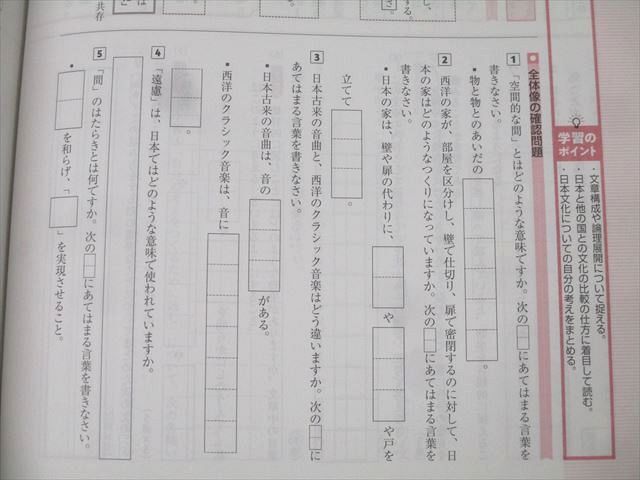 学習の
ポイント
・文章構成や論理展開について捉える。
・日本と他の国との文化の比較の仕方に着目して読む。
・日本文化についての自分の考えをまとめる。
全体像の確認問題
1 「空間的な間」とはどのような意味ですか。次の□にあてはまる言葉を
書きなさい。
・物と物とのあいだの□。
2 西洋の家が、部屋を区分けし、壁で仕切り、扉で密閉するのに対して、日
本の家はどのようなつくりになっていますか。次の□にあてはまる言葉を
書きなさい。
・日本の家は、壁や扉の代わりに、□や□や戸を
立てて□。
3 日本古来の音曲と、西洋のクラシック音楽はどう違いますか。次の□に
あてはまる言葉を書きなさい。
・日本古来の音曲は、音の□がある。
・西洋のクラシック音楽は、音に□
□。
4 「遠慮」は、日本ではどのような意味で使われていますか。
5 「間」のはたらきとは何ですか。次の□にあてはまる言葉を書きなさい。
・□を和らげ、「□」を実現させること。
共存